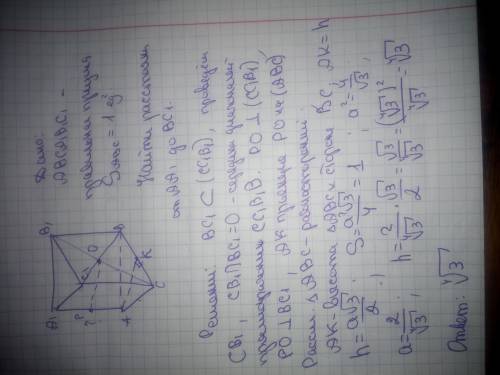 Дано:
ABCA₁B₁C₁ -
правильная призма
S△ABC = 1 ед²
Найти расстояние
от AA₁ до BC₁.
A₁ B₁ C₁ P ? O A B K C
Решение: BC₁ ⊂ (CC₁B₁), проведём
CB₁, CB₁∩BC₁=O - середина диагоналей
прямоугольника CC₁B₁B. PO ⊥ (CC₁B₁),
PO ⊥ BC₁, AK проекция PO на (ABC)
Рассм. △ABC - равносторонний:
AK - высота △ABC к стороне BC, AK = h
h = a√3/2 ; S = a²√3/4 = 1 ; a² = 4/√3 ;
a = 2/⁴√3 ; h = 2/⁴√3 · √3/2 = √3/⁴√3 = (⁴√3)²/⁴√3 = ⁴√3
Ответ: ⁴√3